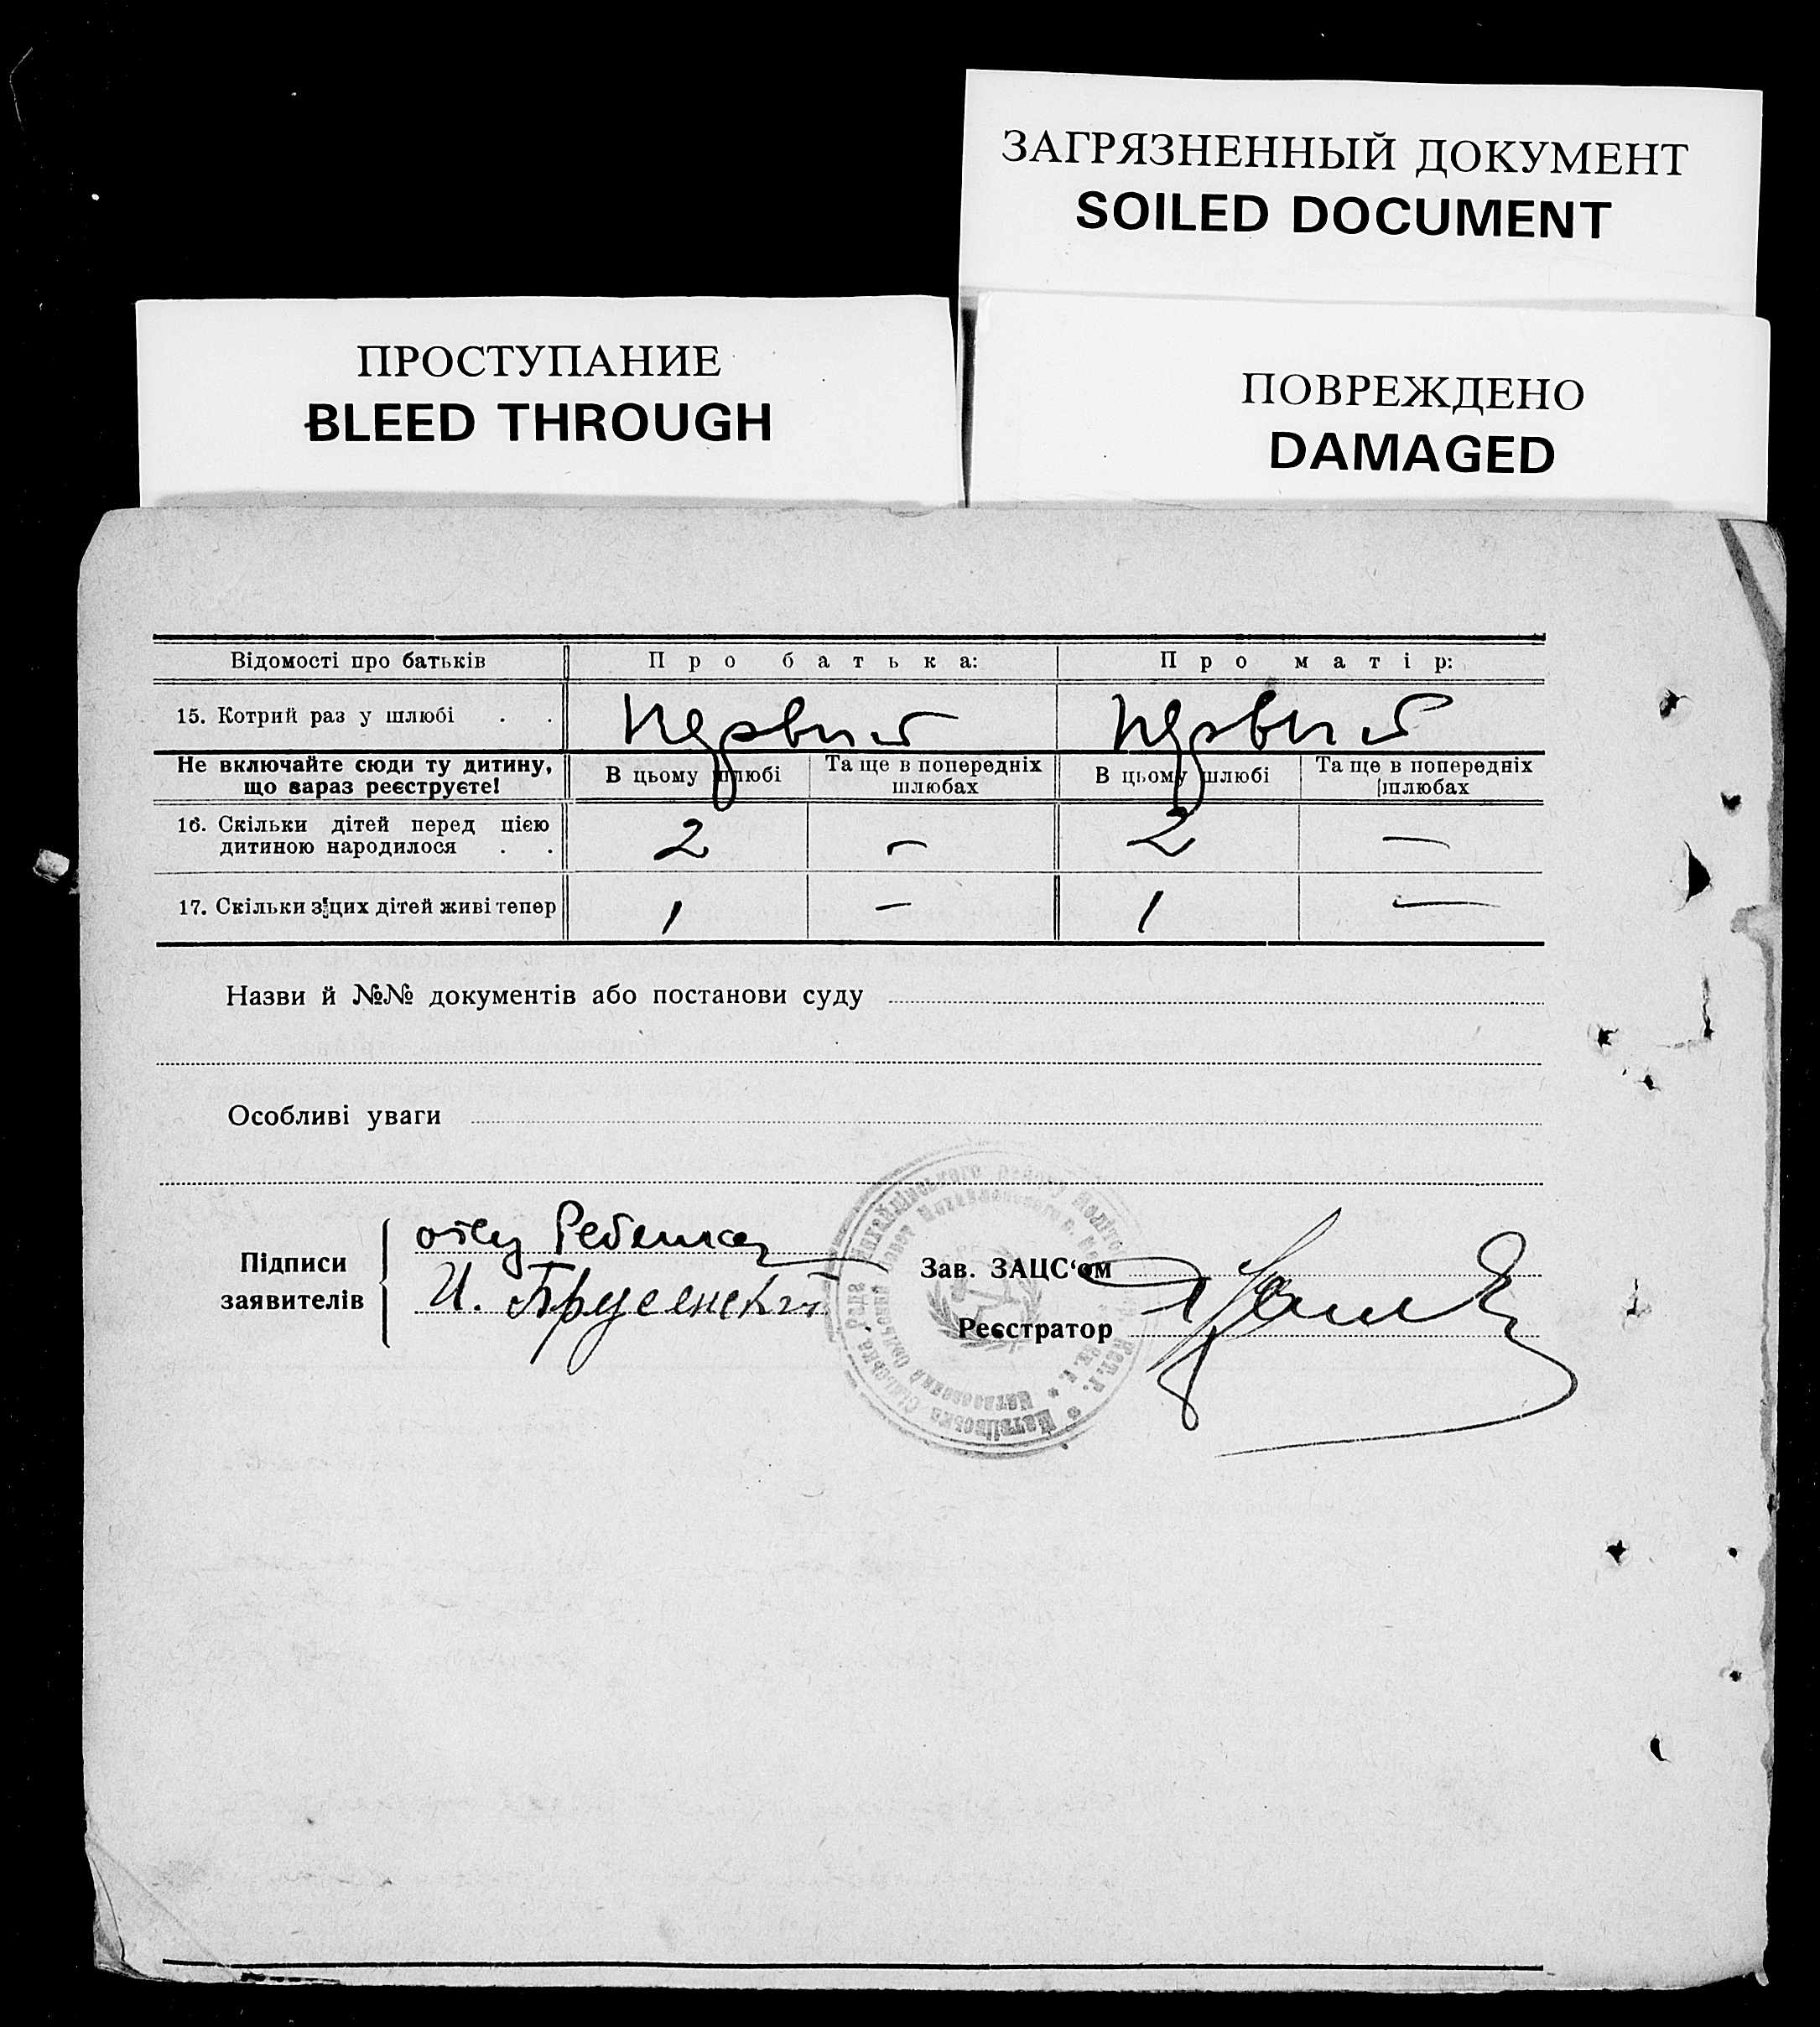 ЗАГРЯЗНЕННЫЙ ДОКУМЕНТ
SOILED DOCUMENT
ПРОСТУПАНИЕ
BLEED THROUGH
ПОВРЕЖДЕНО
DAMAGED
Відомості про батьків Про батька: Про матір:
15. Котрий раз у шлюбі . . Первый Первый
Не включайте сюди ту дитину, що зараз реєструєте! В цьому шлюбі Та ще в попередніх шлюбах В цьому шлюбі Та ще в попередніх шлюбах
16. Скільки дітей перед цією дитиною народилося . . 2 — 2 —
17. Скільки з цих дітей живі тепер 1 — 1 —
Назви й №№ документів або постанови суду
Особливі уваги
Підписи заявителів
отец Ребенка
И.
Зав. ЗАЦС‘ом
Реєстратор